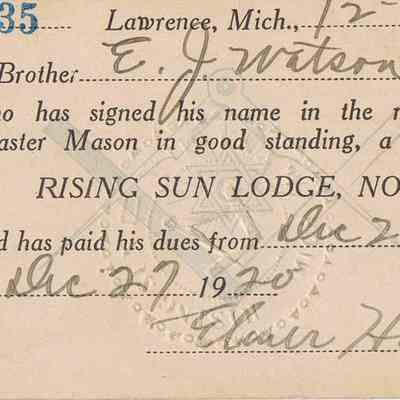 35 Lawrence, Mich., 12-
Brother E. J. Watson
o has signed his name in the
aster Mason in good standing, a
RISING SUN LODGE, NO
d has paid his dues from Dec 2
Dec 27 1920
Elmer H.